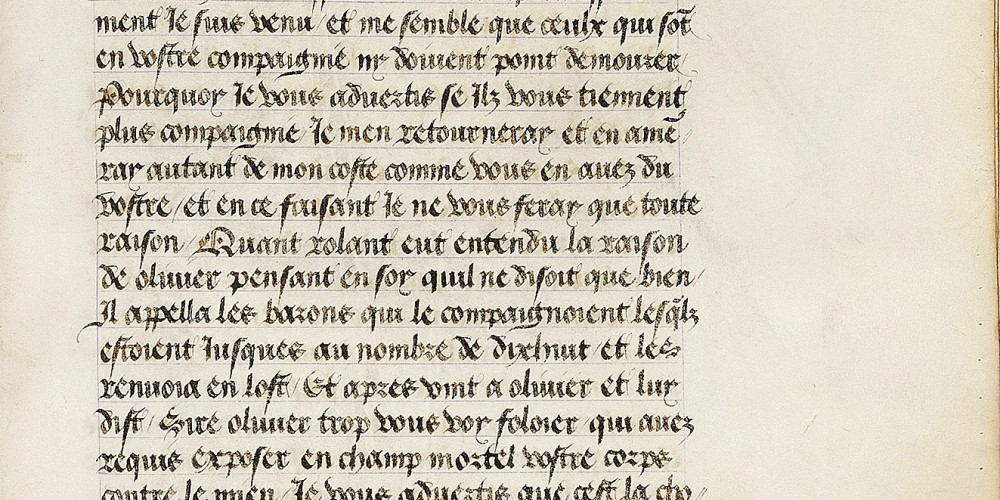 ment Je suis venu / et me semble que ceulx qui sōt
en vostre compaignie ny doivent point demourer /
Pourquoy Je vous advertis se Ilz vous tiennent
plus compaignie Je men retourneray et en ame /
ray autant de mon coste comme vous en avez du
vostre / et en ce faisant Je ne vous feray que toute
raison / Quant rolant eut entendu la raison
de olivier pensant en soy quil ne disoit que bien /
Il appella les barons qui le compaignoient lesq̄lz
estoient Jusques au nombre de dixhuit et les
renvoia en lost / Et apres vint a olivier et luy
dist / Sire olivier trop vous voy foloier / qui avez
requis exposer en champ mortel vostre corps
contre le mien / Je vous advertis que cest la cho //